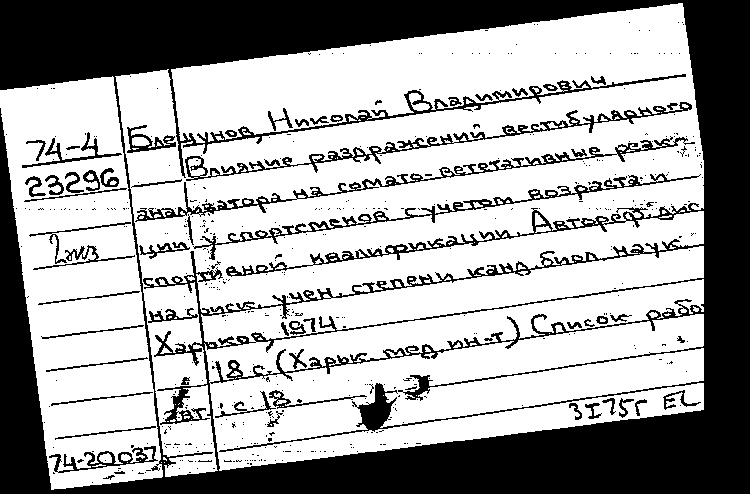 74-4
23296
2 экз
Блещунов, Николай Владимирович.
Влияние раздражений вестибулярного
анализатора на сомато-вегетативные реак-
ции у спортсменов с учетом возраста и
спортивной квалификации. Автореф. дис.
на соиск. учен. степени канд. биол. наук.
Харьков, 1974.
18 с. (Харьк. мед. ин-т) Список работ
авт.: с. 18.
74-20037